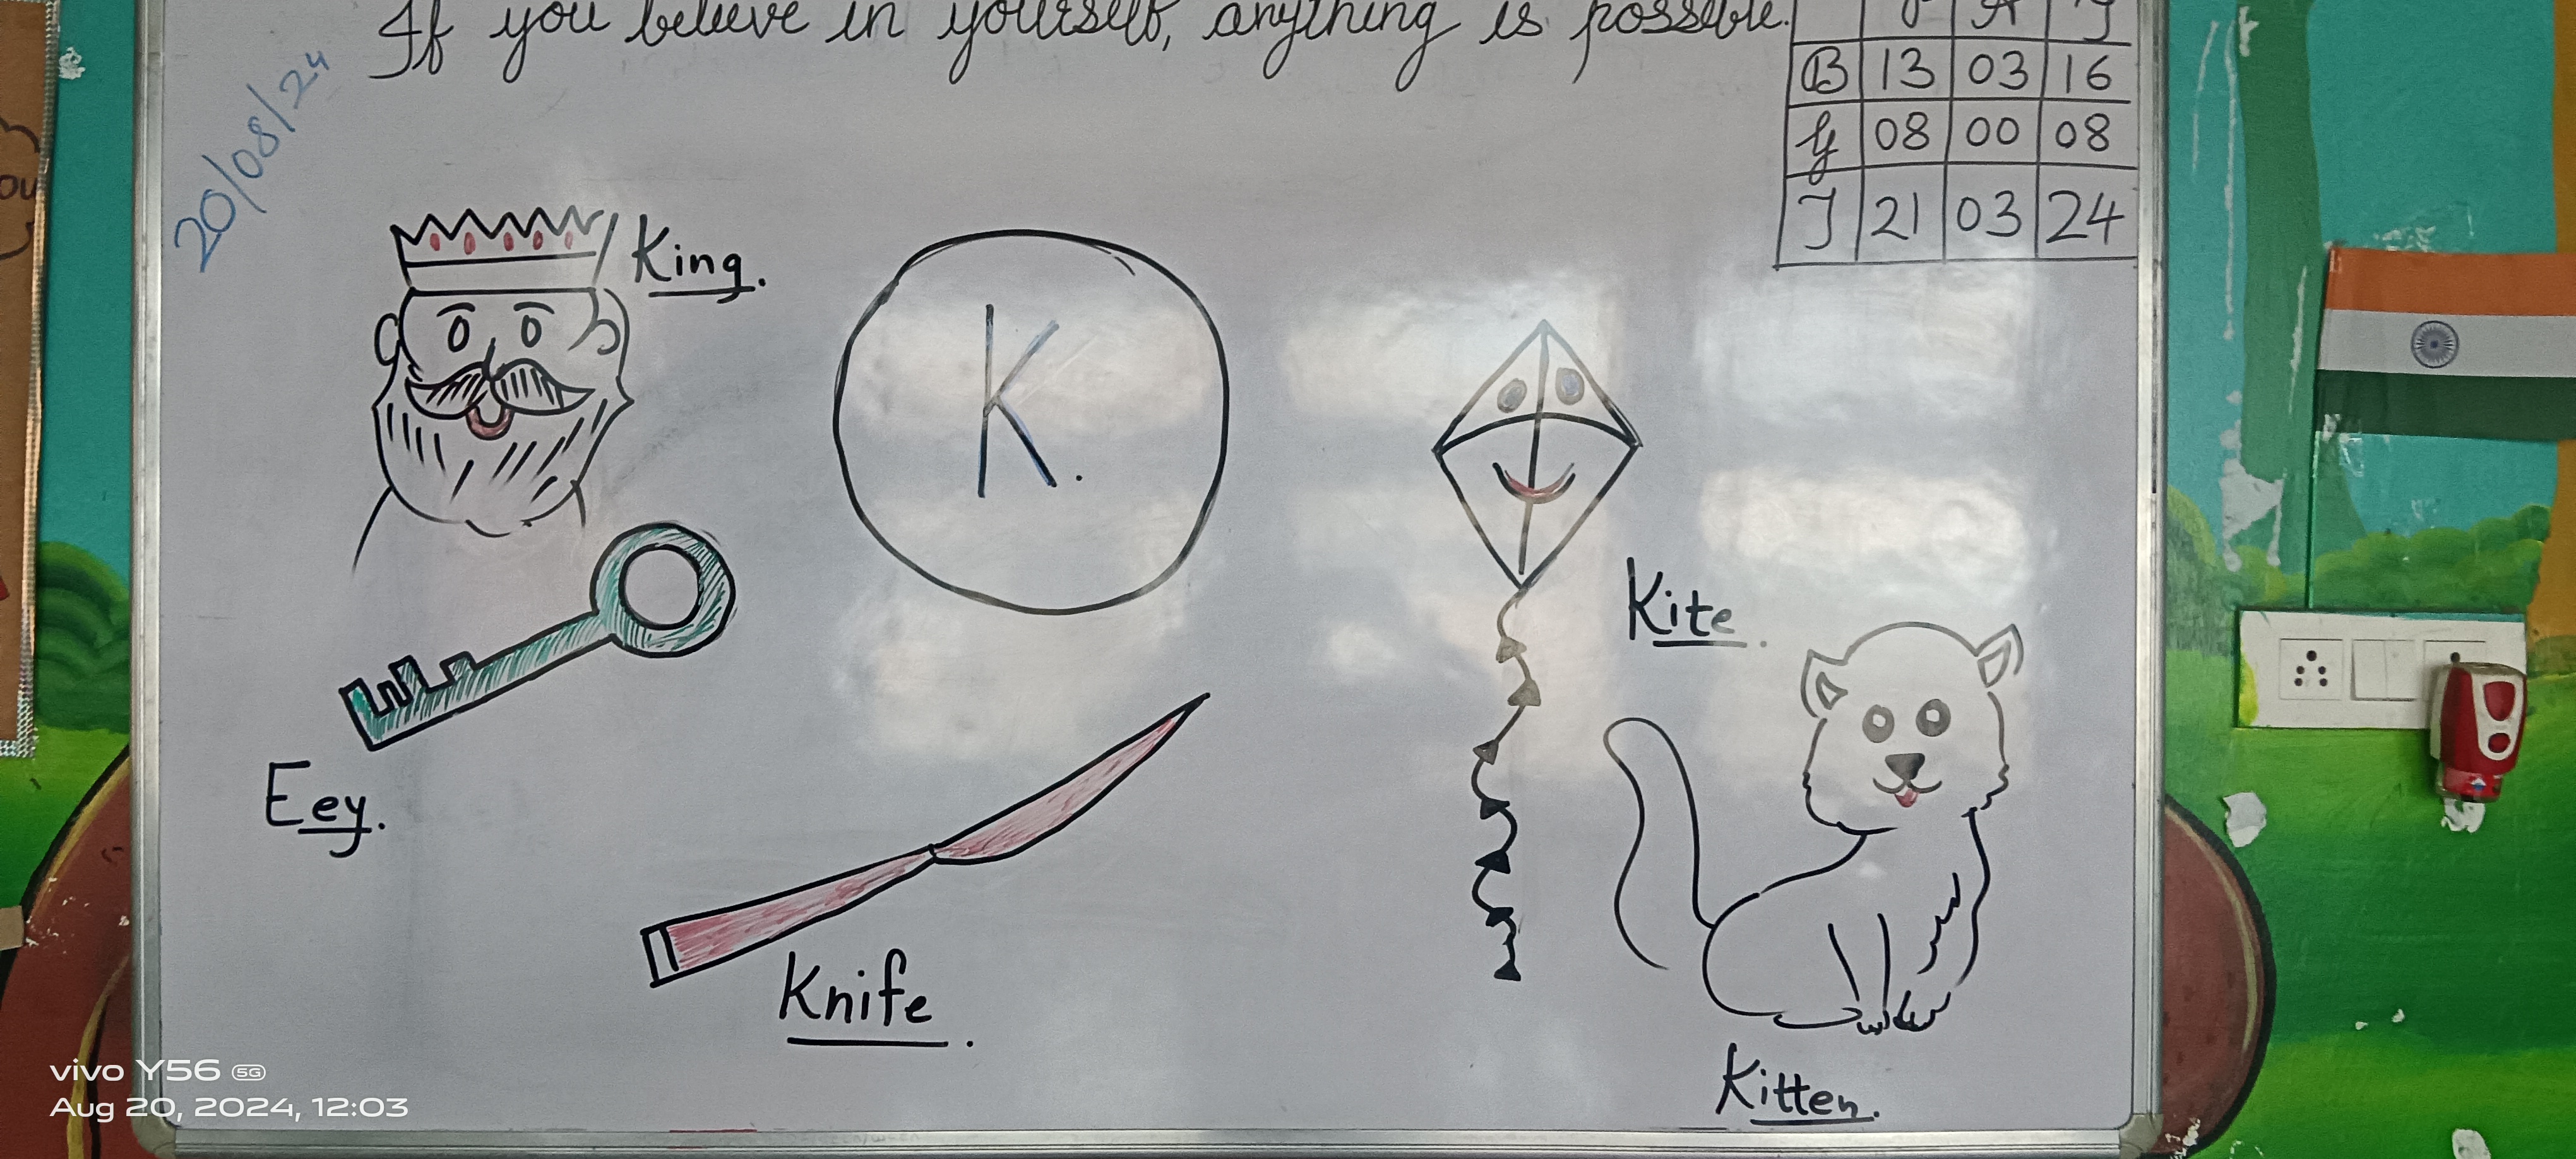 If you believe in yourself, anything is possible.
P A T
B 13 03 16
G 08 00 08
T 21 03 24
20/08/24
King.
K.
Kite.
Eey.
Knife.
Kitten.
vivo Y56 5G
Aug 20, 2024, 12:03